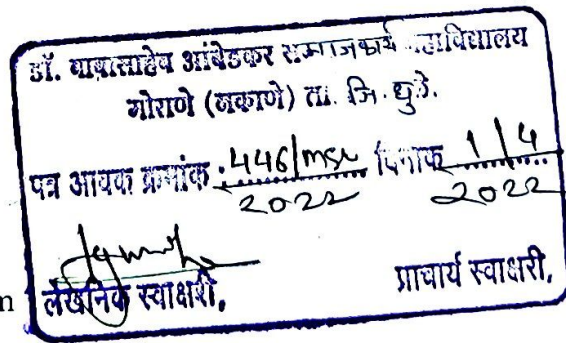 डॉ. बाबासाहेब आंबेडकर समाजकार्य महाविद्यालय
मोराणे (लकाणे) ता. जि. धुळे.
पत्र आवक क्रमांक : 446/msw दिनांक 1/4
2022 2022
लेखनिक स्वाक्षरी, प्राचार्य स्वाक्षरी,